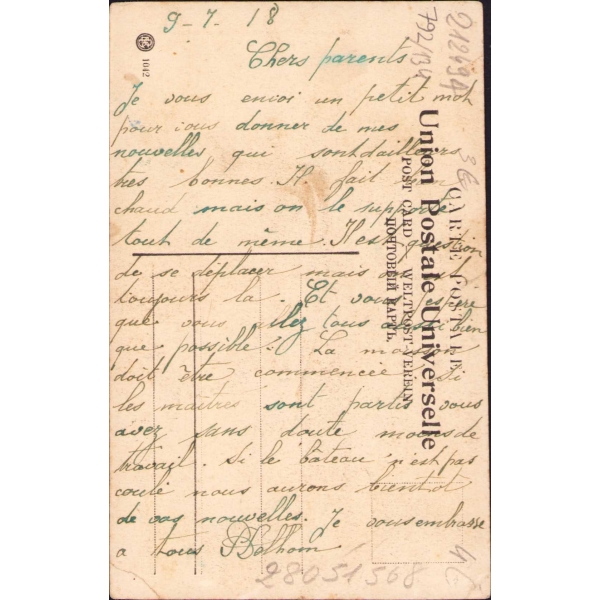 9-7. 18
Chers parents
Je vous envoi un petit mot
pour vous donner de mes
nouvelles qui sont d'ailleurs
très bonnes. Il fait bien
chaud mais on le supporte
tout de même. Il est question
de se déplacer mais on est
toujours la. Et vous j'espère
que vous allez tous aussi bien
que possible. La maison
doit être commencée. Si
les maîtres sont partis vous
avez sans doute moins de
travail. Si le bâteau n'est pas
coulé nous aurons bientot
de vos nouvelles. Je vous embrasse
a tous
CARTE POSTALE
Union Postale Universelle
POST CARD — WELTPOST-VEREIN
1042
792/134
3E
28051568